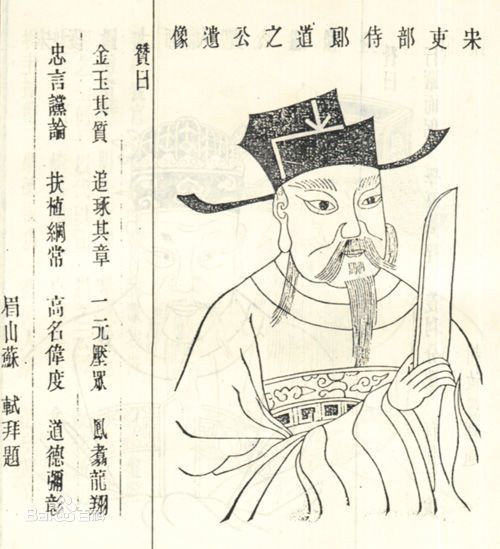 宋吏部侍郎道之公遺像
贊曰
金玉其質　追琢其章　一元壓眾　鳳翥龍翔
忠言讜論　扶植綱常　高名偉度　道德彌彰
眉山蘇　軾拜題
Bai 百科